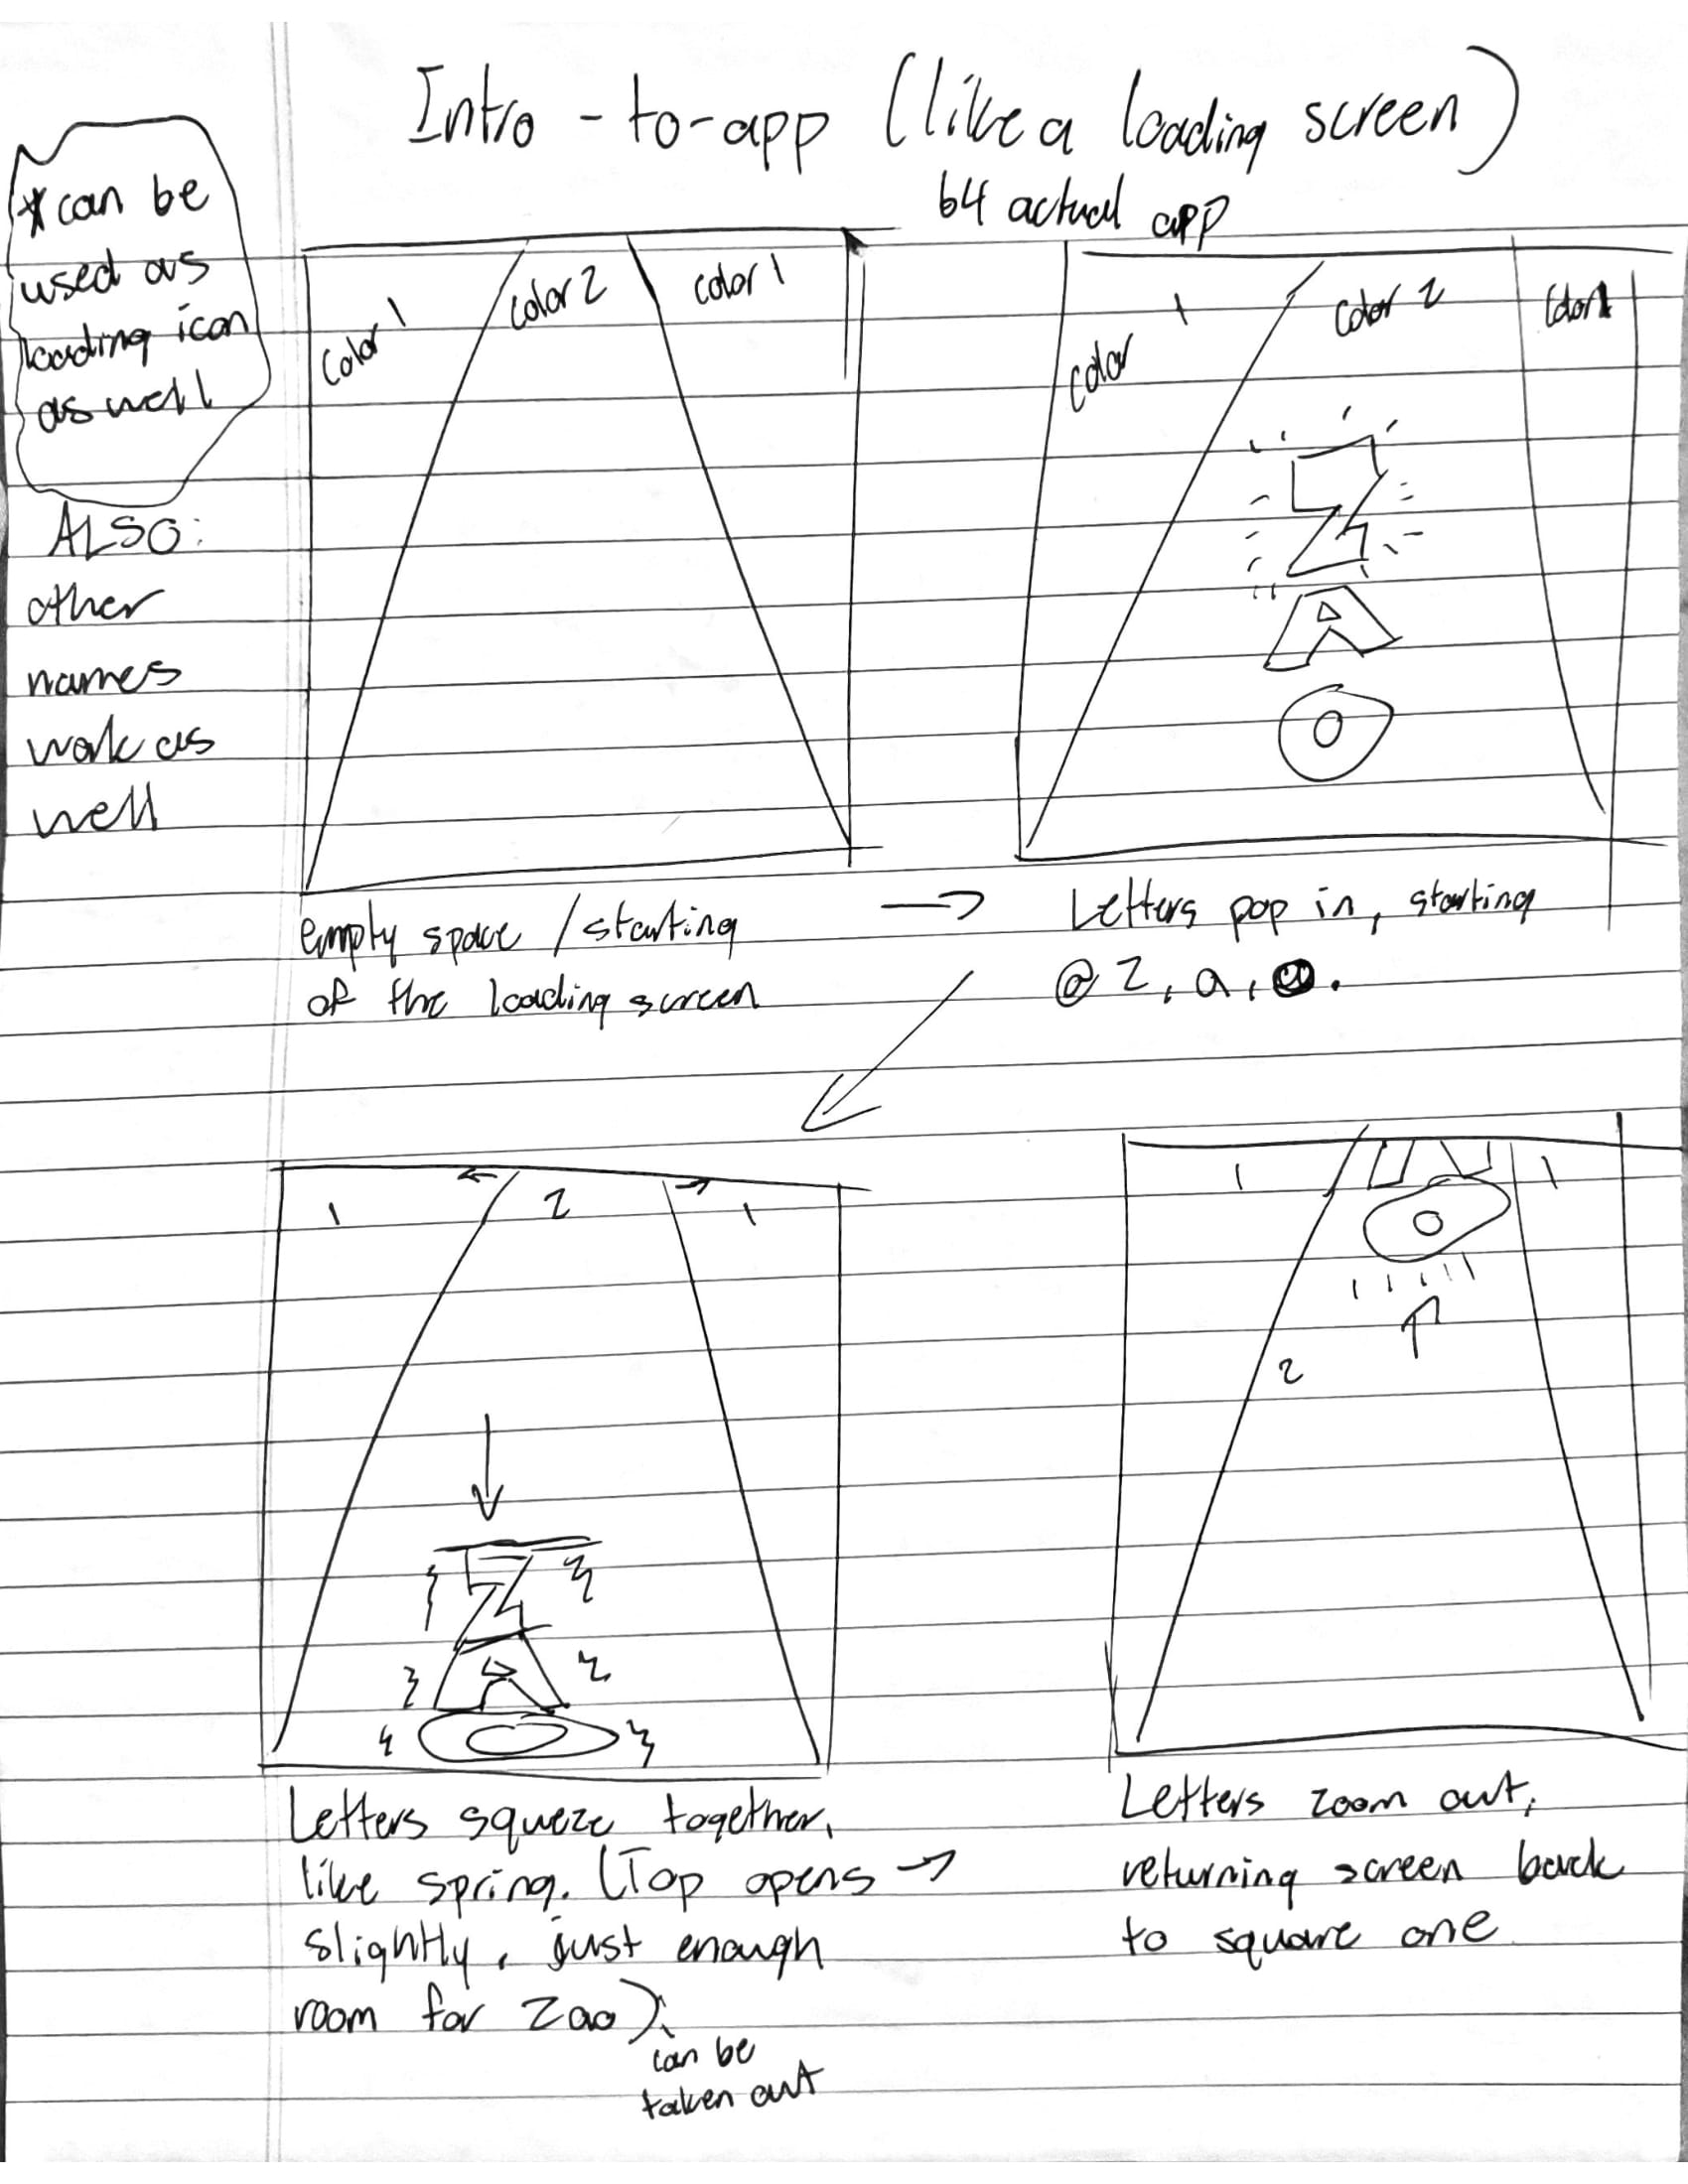 Intro-to-app (like a loading screen)
b4 actual app
* can be
used as
loading icon
as well
ALSO:
other
names
work as
well
color 1
color 2
color 1
empty space / starting
of the loading screen
color 1
color 2
color 1
Z
A
O
Letters pop in, starting
@ z, a, o.
1
2
1
Z
A
O
Letters squeze together,
like spring. (Top opens
slightly, just enough
room for zao).
can be
taken out
1
1
O
2
Letters zoom out,
returning screen back
to square one